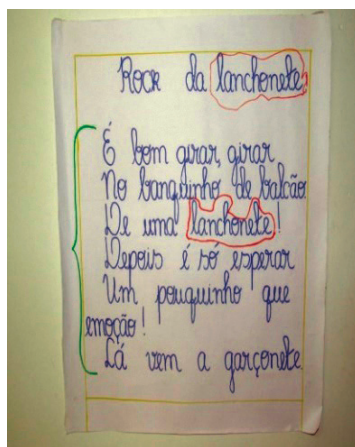 Rock da lanchonete
É bom girar, girar
No banquinho de balcão
De uma lanchonete!
Depois é só esperar
Um pouquinho que
emoção!
Lá vem a garçonete